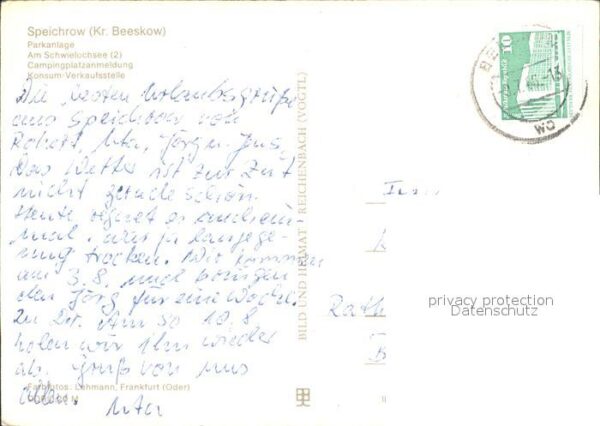 Speichrow (Kr. Beeskow)
Parkanlage
Am Schwielochsee (2)
Campingplatzanmeldung
Konsum-Verkaufsstelle
Die besten Urlaubsgrüße
aus Speichrow von
Robert, Uta, Jörg u. Jens,
Das Wetter ist zur Zeit
nicht gerade schön.
Heute regnet es auch ein-
mal. war ja lange ge-
nug trocken. Wir kommen
am 3.8. und bringen
den Jörg für eine Woche
zu Dr. Am So 10.8
holen wir ihn wieder
ab. Gruß von uns
allen. Uta
Farbfotos: Lehmann, Frankfurt (Oder)
BILD UND HEIMAT REICHENBACH (VOGTL)
10
Rath
B
privacy protection
Datenschutz